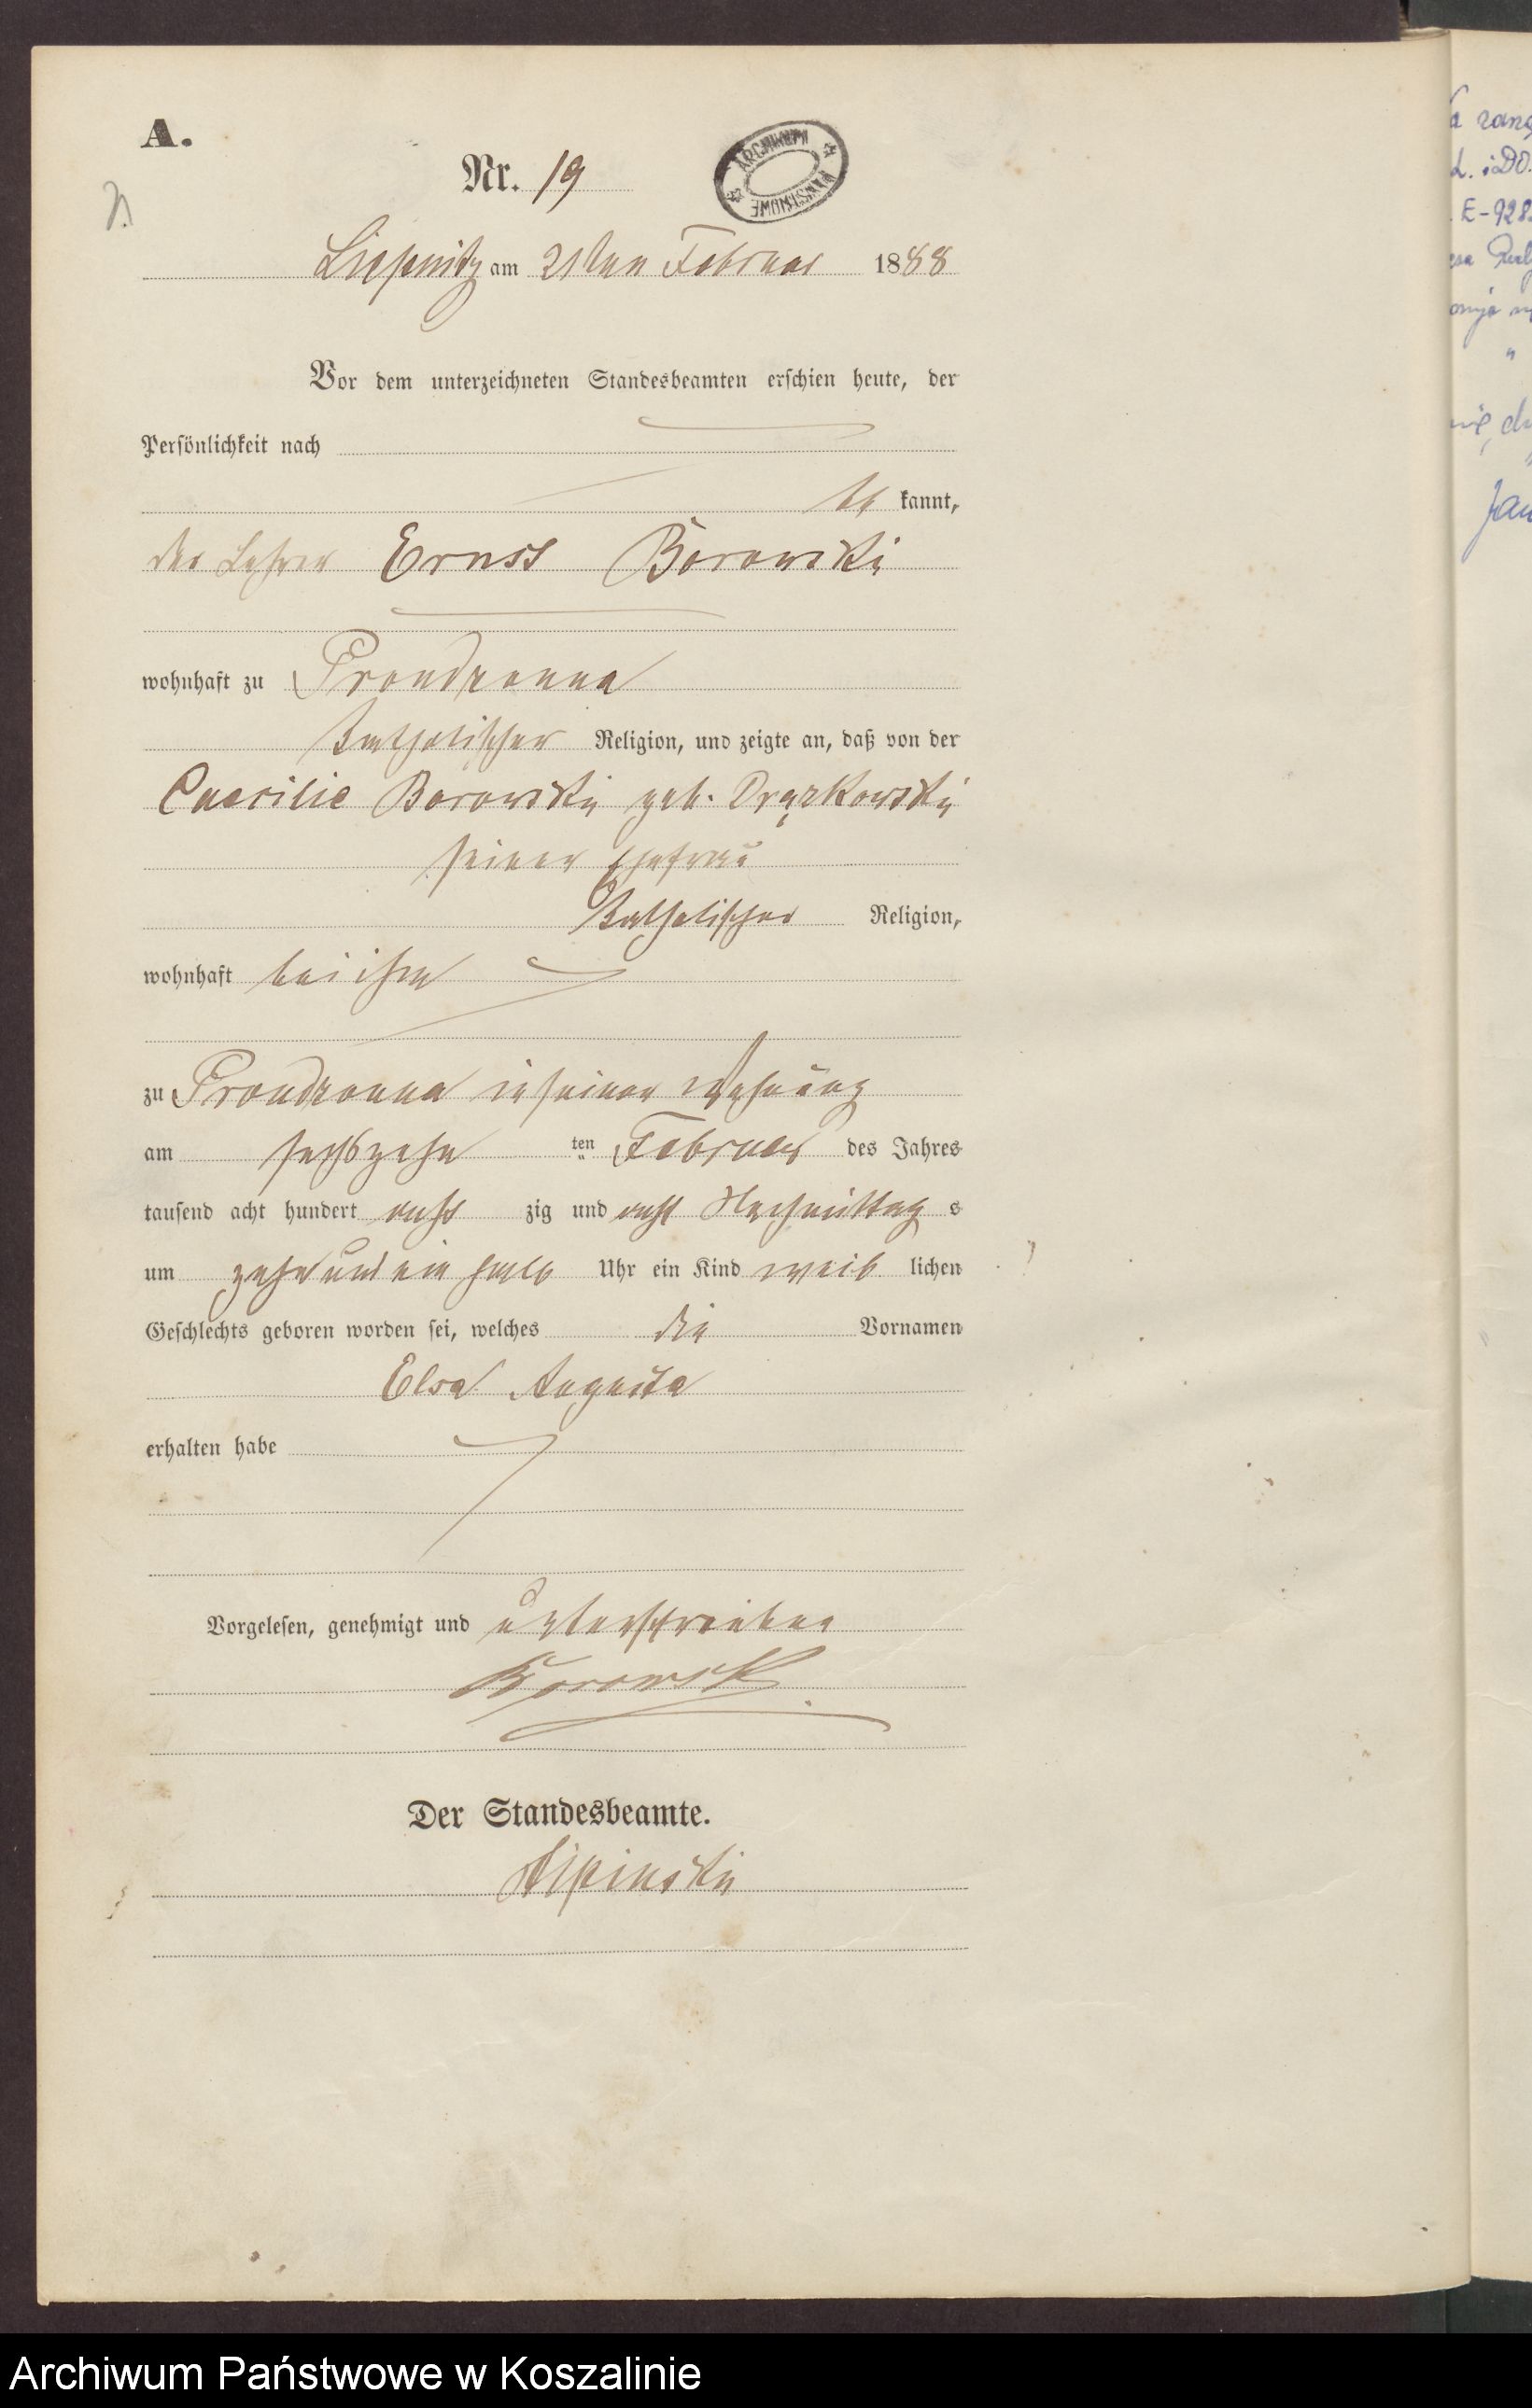 A.
Nr. 19
ARCHIWUM PAŃSTWOWE
Liepnitz am 21ten Februar 1888
Vor dem unterzeichneten Standesbeamten erschien heute, der
Persönlichkeit nach
be kannt,
der Lehrer Ernst Borowski
wohnhaft zu Prondzonna
katholischer Religion, und zeigte an, daß von der
Caecilie Borowski geb. Drązkowski
seiner Ehefrau
katholischer Religion,
wohnhaft bei ihm
zu Prondzonna in seiner Wohnung
am sechszehn ten Februar des Jahres
tausend acht hundert acht zig und acht Nachmittag s
um zehn und ein halb Uhr ein Kind weib lichen
Geschlechts geboren worden sei, welches die Vornamen
Elsa Augusta
erhalten habe
Vorgelesen, genehmigt und unterschrieben
Borowski
Der Standesbeamte.
E-928
Archiwum Państwowe w Koszalinie